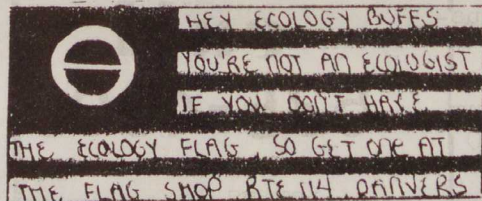 HEY ECOLOGY BUFFS
YOU'RE NOT AN ECOLOGIST
IF YOU DON'T HAVE
THE ECOLOGY FLAG, SO GET ONE AT
THE FLAG SHOP RTE 114, DANVERS